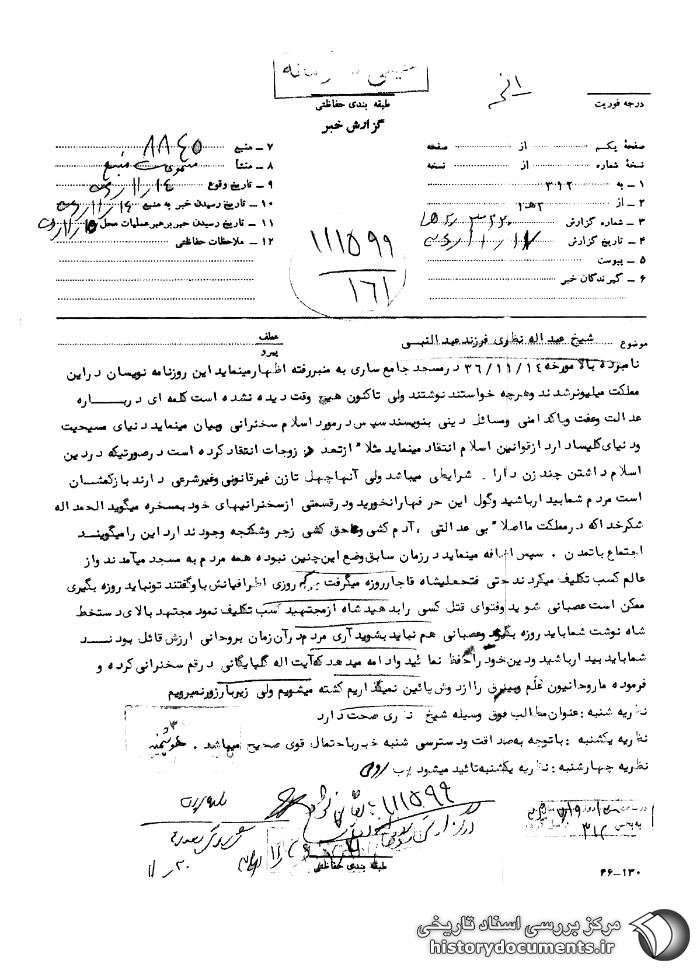 طبقه بندی حفاظتی
گزارش خبر
درجه فوریت
صفحهٔ یکم از صفحه
نسخهٔ شماره از نسخه
۱ – به ۳۱۲
۲ – از ۲ه۱
۳ – شماره گزارش
۴ – تاریخ گزارش
۵ – پیوست
۶ – گیرندگان خبر
۷ – منبع ۸۸۴۵
۸ – منشأ
۹ – تاریخ وقوع
۱۰ – تاریخ رسیدن خبر به منبع
۱۱ – تاریخ رسیدن خبر برهبر عملیات محل
۱۲ – ملاحظات حفاظتی
۱۱۱۵۹۹
۱۶۱
موضوع شیخ عبداله نظری فرزند عبدالنبی
عطف
پیرو
نامبرده بالا مورخه ۳۶/۱۱/۱۴ در مسجد جامع ساری به منبر رفته اظهار مینماید این روزنامه نویسان در این
مملکت میلیونر شدند و هرچه خواستند نوشتند ولی تاکنون هیچ وقت دیده نشده است کلمه ای در بــاره
عدالت وعفت و پاکدامنی ومسائل دینی بنویسند سپس در مورد اسلام سخنرانی وبیان مینماید دنیای مسیحیت
ودنیای کلیسا دارد از قوانین اسلام انتقاد مینماید مثلا" از تعدد زوجات انتقاد کرده است در صورتیکه در دین
اسلام داشتن چند زن دارای شرایطی میباشد ولی آنها چهل تا زن غیرقانونی وغیر شرعی دارند باز کمشان
است مردم شما بیدار باشید وگول این حرفها را نخورید ودر قسمتی از سخنرانیهای خود بمسخره میگوید الحمد اله
شکر خدا که در مملکت ما اصلا" بی عدالتی ، آدم کشی وناحق کشی زجر وشکنجه وجود ندارد این را میگوینــد
اجتماع باتمدن . سپس اضافه مینماید در زمان سابق وضع این چنین نبوده همه مردم به مسجد میآمدند واز
عالم کسب تکلیف میکردند حتی فتحعلیشاه قاجار روزه میگرفت روزی اطرافیانش باو گفتند تو نباید روزه بگیری
ممکن است عصبانی شوید وفتوای قتل کسی را بدهید شاه از مجتهد کسب تکلیف نمود مجتهد بالای دستخط
شاه نوشت شما باید روزه بگیرید وعصبانی هم نباید بشوید آری مردم در آن زمان بروحانی ارزش قائل بودنــد
شما باید بیدار باشید ودین خود را حفظ نمائید وادامه میدهد که آیت اله گلپایگانی در قم سخنرانی کرده و
فرموده ما روحانیون علم و را از دوش پائین نمیگذاریم کشته میشویم ولی زیر بار زور نمیرویم
نظریه شنبه : عنوان مطالب فوق وسیله شیخ نظری صحت دارد
نظریه یکشنبه : باتوجه به صداقت ودسترسی شنبه خبر باحتمال قوی صحیح میباشد .
نظریه چهارشنبه : نظریه یکشنبه تائید میشود
۱۱۱۵۹۹
طبقه بندی حفاظتی
۲۶–۱۳۰
مرکز بررسی اسناد تاریخی
historydocuments.ir